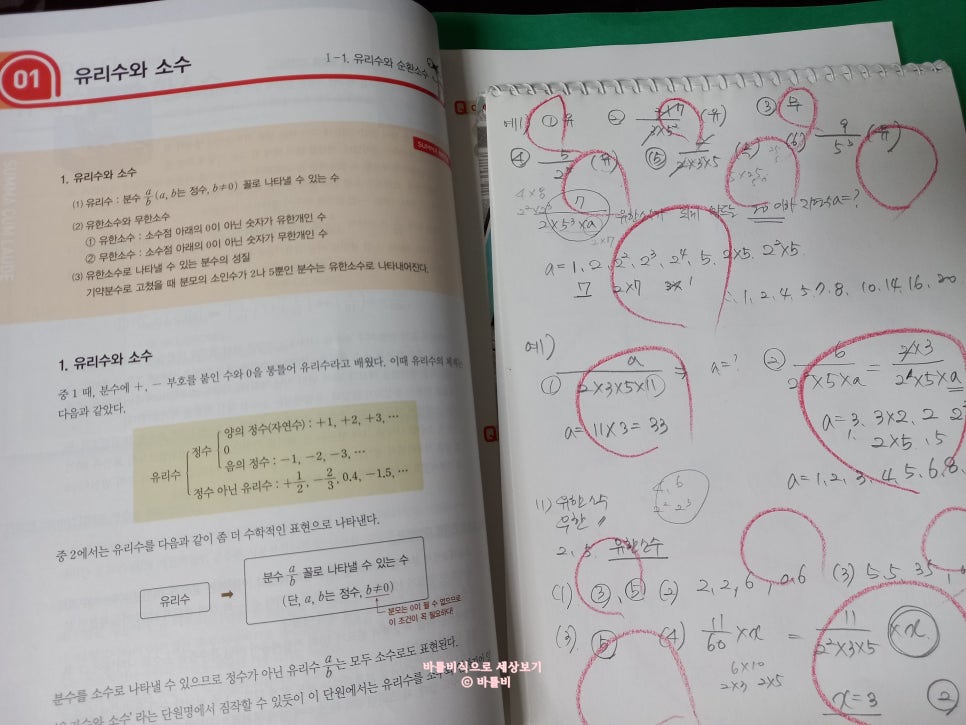 01
유리수와 소수
Ⅰ-1. 유리수와 순환소수
SUMMA CUM LAUDE
1. 유리수와 소수
(1) 유리수 : 분수 a/b (a, b는 정수, b≠0) 꼴로 나타낼 수 있는 수
(2) 유한소수와 무한소수
① 유한소수 : 소수점 아래의 0이 아닌 숫자가 유한개인 수
② 무한소수 : 소수점 아래의 0이 아닌 숫자가 무한개인 수
(3) 유한소수로 나타낼 수 있는 분수의 성질
기약분수로 고쳤을 때 분모의 소인수가 2나 5뿐인 분수는 유한소수로 나타내어진다.
1. 유리수와 소수
중1 때, 분수에 +, - 부호를 붙인 수와 0을 통틀어 유리수라고 배웠다. 이때 유리수의
다음과 같았다.
유리수
정수
양의 정수(자연수) : +1, +2, +3, …
0
음의 정수 : -1, -2, -3, …
정수 아닌 유리수 : +1/2, -2/3, 0.4, -1.5, …
중2에서는 유리수를 다음과 같이 좀 더 수학적인 표현으로 나타낸다.
유리수 ➡ 분수 a/b 꼴로 나타낼 수 있는 수
(단, a, b는 정수, b≠0)
분모는 0이 될 수 없으므로
이 조건이 꼭 필요하다!
분수를 소수로 나타낼 수 있으므로 정수가 아닌 유리수 a/b는 모두 소수로도 표현된다.
라는 단원명에서 짐작할 수 있듯이 이 단원에서는 유리수를
예1) ① 유 ② (유) ③ 무
④ (유) ⑤ 2×3×5 (6) 9/5³ (유)
7/2×5³×a a=?
a=1, 2, 2², 2³, 2⁴, 5, 2×5, 2²×5
7 2×7
∴ 1, 2, 4, 5, 7, 8, 10, 14, 16, 20
예)
① a/2×3×5×11 a=?
a=11×3=33
② 6/2²×5×a = 2×3/2²×5×a
a=3, 3×2, 2, 2²
2×5, 5
a=1, 2, 3, 4, 5, 6, 8,
4, 6
2², 2³
11) 유한소수
무한 〃
2, 5 유한소수
(1) ③, ⑤ (2) 2, 2, 6, 0.6 (3) 5, 5, 35,
(3) ⑤ (4) 11/60 ×x = 11/2²×3×5 ×x
6×10
2×3 2×5
x=3
②
바틀비식으로 세상보기
© 바틀비